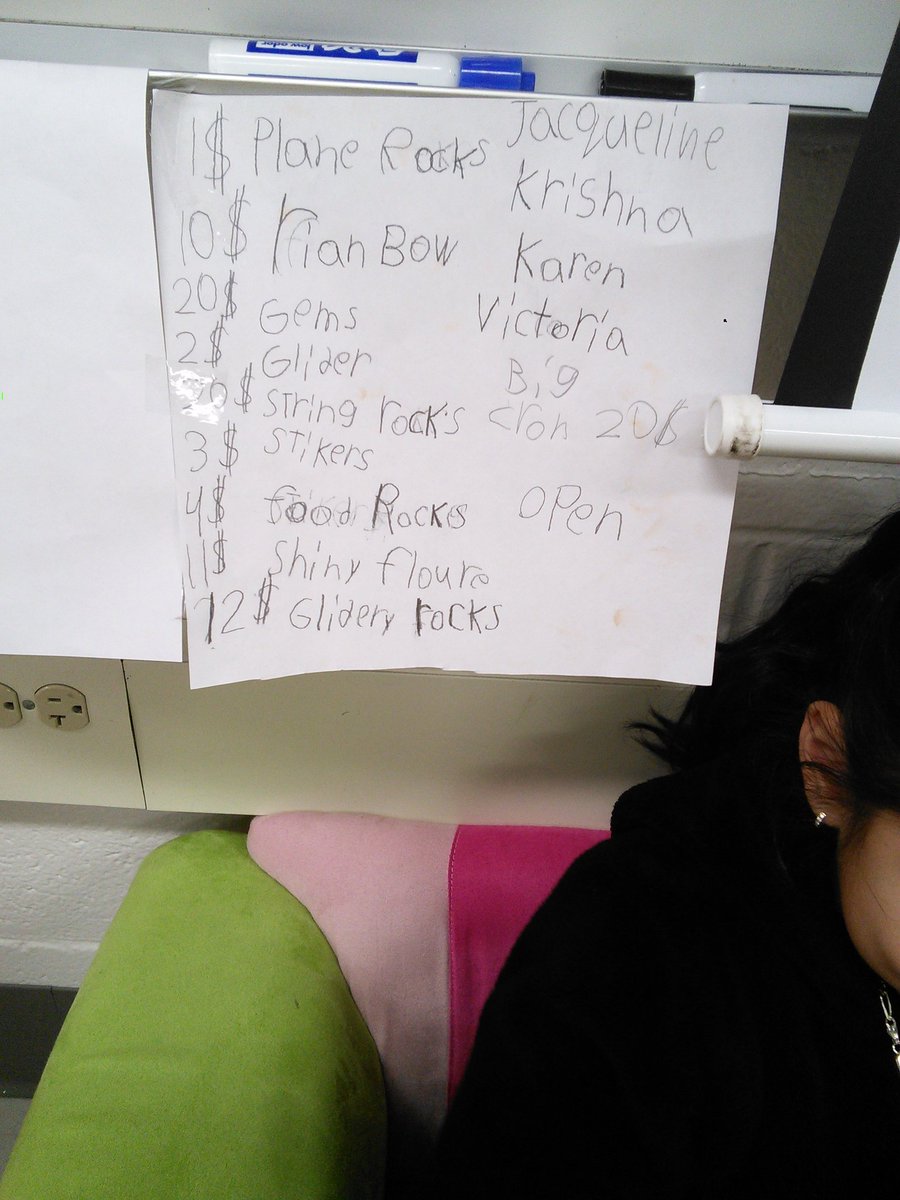 low odor
EXPO
1$ Plane Rocks Jacqueline
Krishna
10$ rian Bow Karen
20$ Gems Victoria
2$ Glider Big
0$ string rocks cron 20$
3$ STikers
4$ food Rocks open
11$ Shiny floure
12$ Glidery rocks